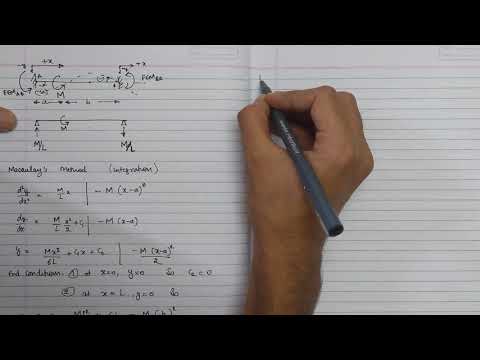 +x
+x
FEM_AB
FEM_BA
M
a
b
M
M/L
M/L
Macaulay's Method (integration)
d²y/dx² = M/L x | - M (x-a)⁰
dy/dx = M/L x²/2 + C₁ | - M (x-a)
y = Mx³/6L + C₁x + C₂ | - M (x-a)²/2
End conditions ① at x=0, y=0 So C₂ = 0
② at x = L, y=0 So